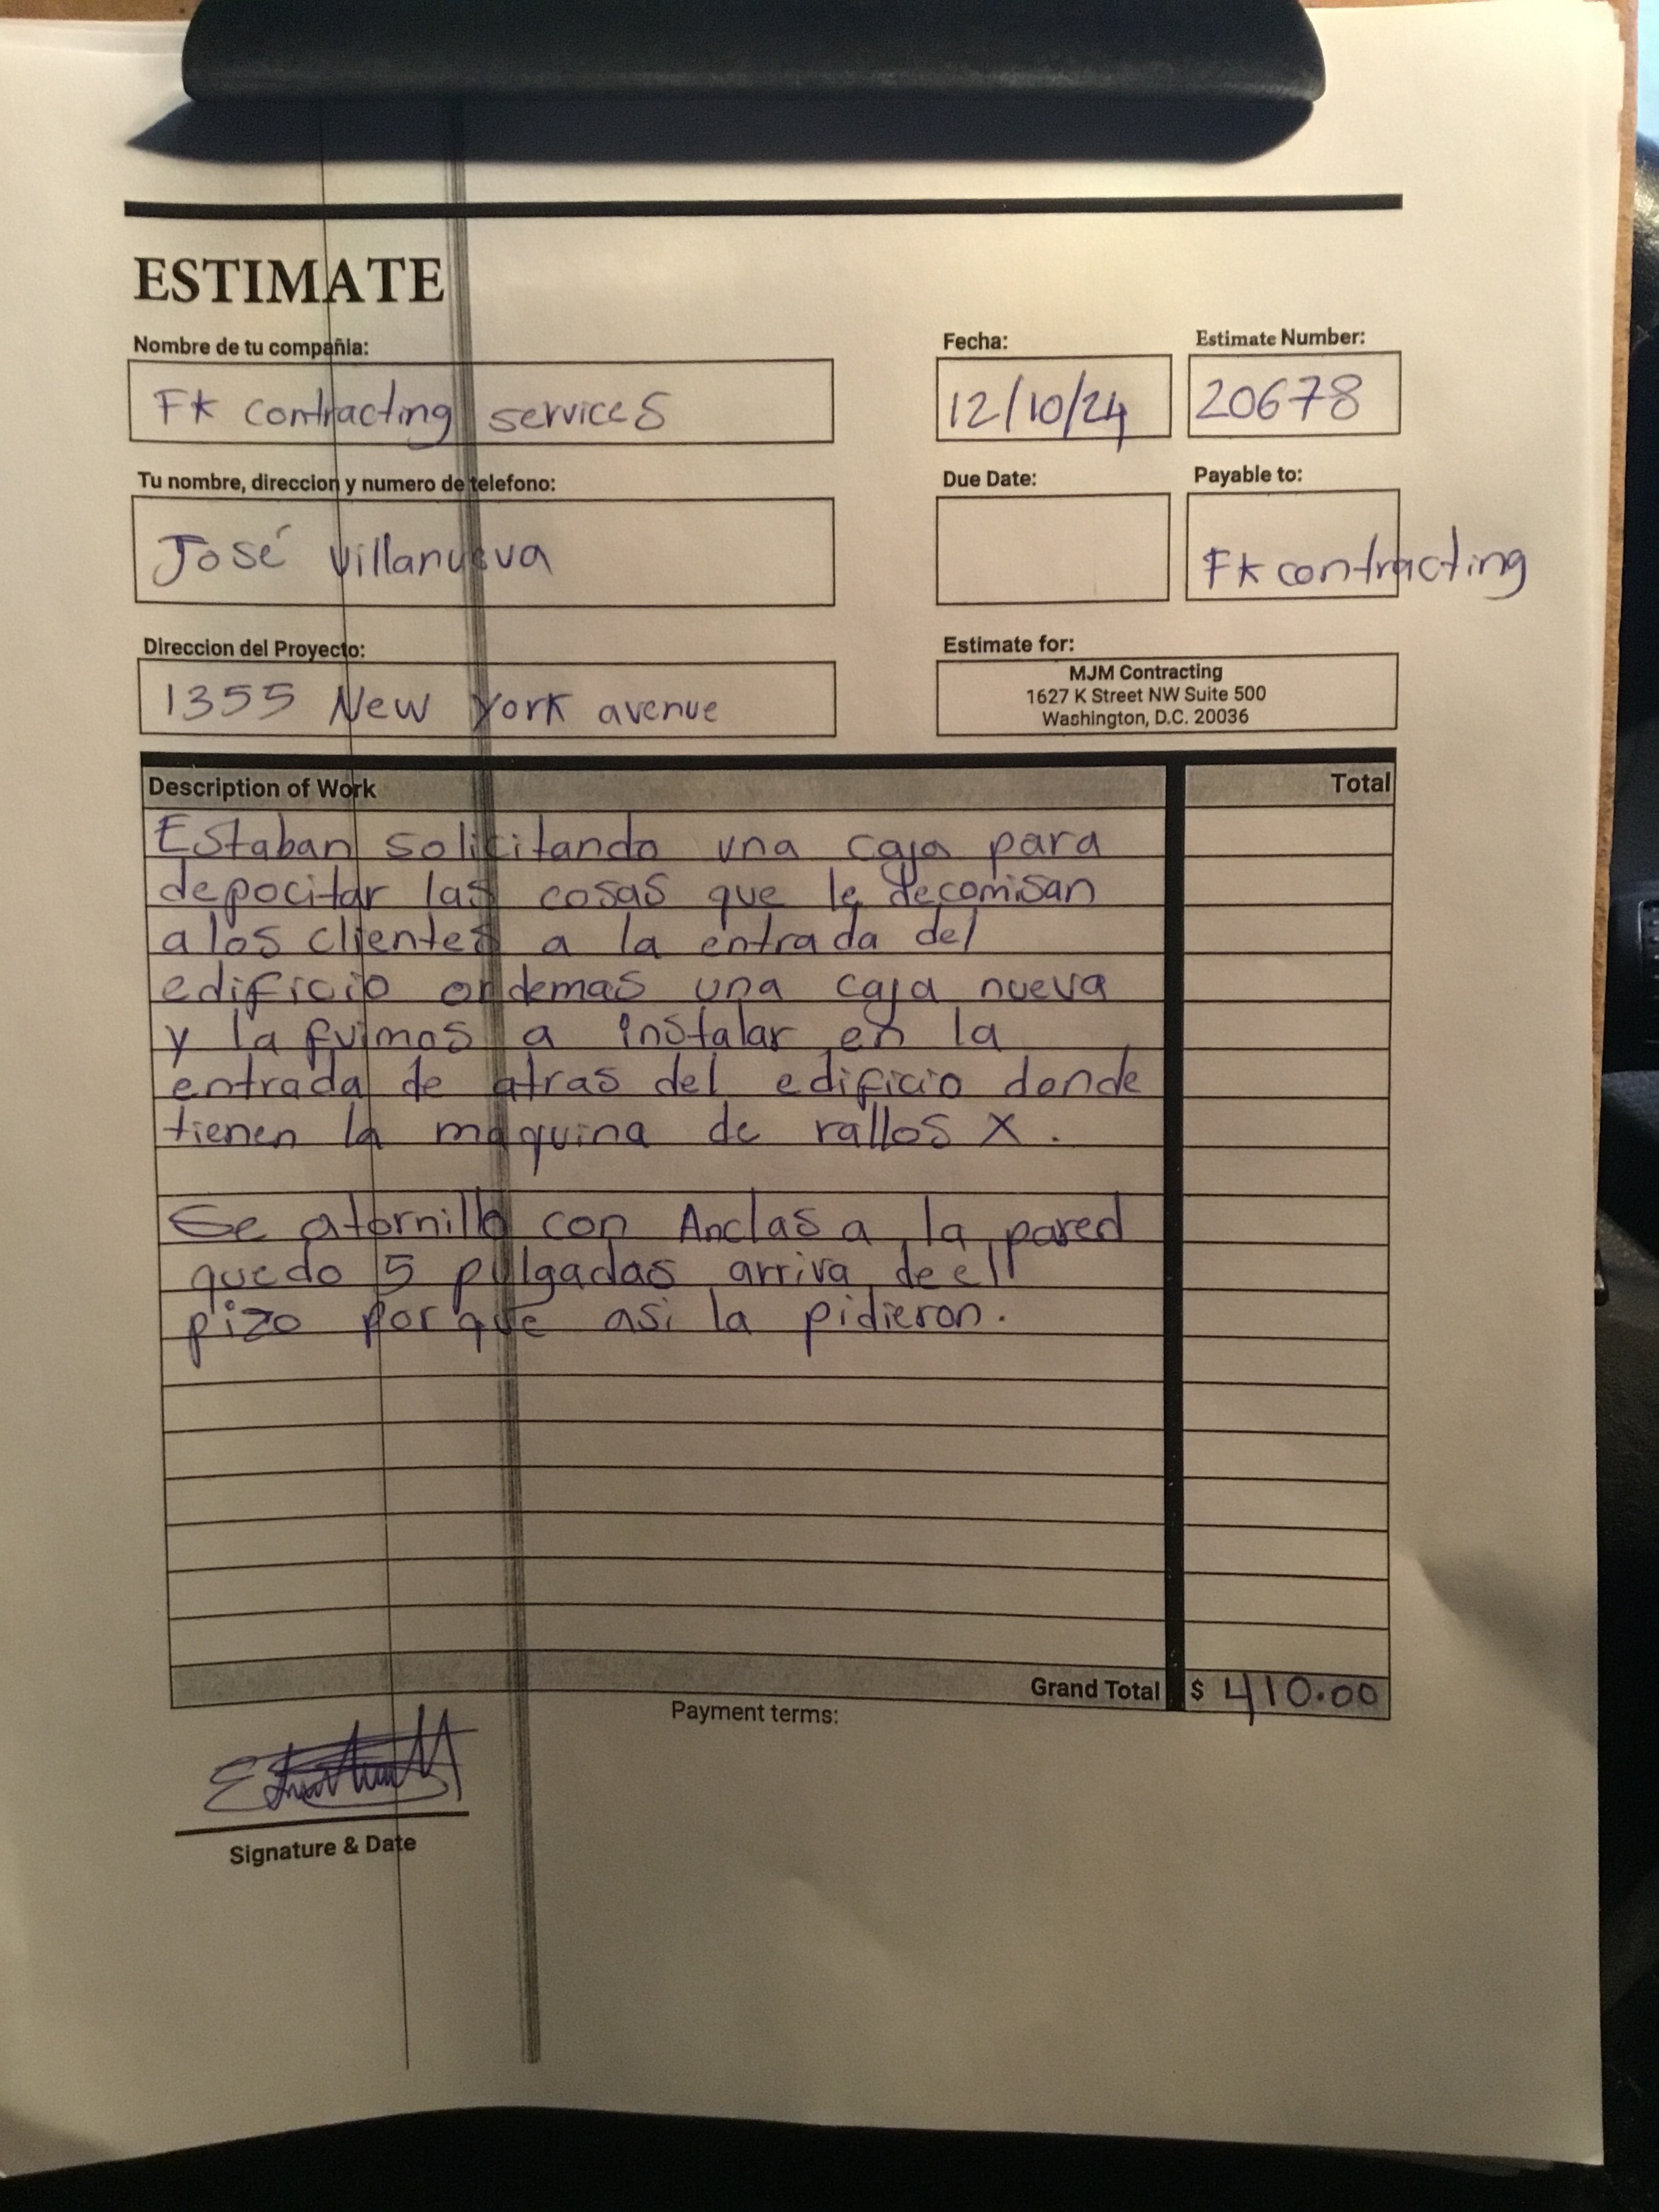 ESTIMATE
Nombre de tu compañia:
Fk contracting services
Fecha:
12/10/24
Estimate Number:
20678
Tu nombre, direccion y numero de telefono:
José Villanueva
Due Date:
Payable to:
Fk contracting
Direccion del Proyecto:
1355 New York avenue
Estimate for:
MJM Contracting
1627 K Street NW Suite 500
Washington, D.C. 20036
Description of Work
Total
Estaban solicitando una caja para
depocitar las cosas que le decomisan
a los clientes a la entrada del
edificio ordemas una caja nueva
y la fuimos a instalar en la
entrada de atras del edificio donde
tienen la maquina de rallos X.
Se atornillo con Anclas a la pared
quedo 5 pulgadas arriva de el
pizo porque asi la pidieron.
Grand Total
$ 410.00
Payment terms:
Signature & Date